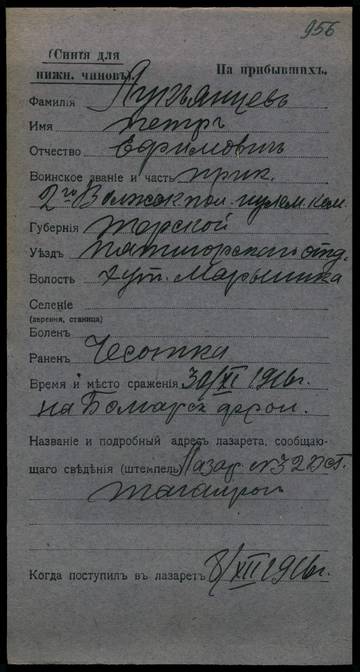 956
(Синія для
нижн. чиновъ).
На прибывшихъ.
Фамилія
Имя Петръ
Отчество Ефимовичъ
Воинское званіе и часть прик.
2го Волжск. пол. пулем. ком.
Губернія Терской
Уѣздъ Пятигорскаго отд.
Волость хут. Марьинка
Селеніе
(деревня, станица)
Боленъ
Раненъ Чесотка
Время и мѣсто сраженія 30/XI 1916г.
на фрон.
Названіе и подробный адресъ лазарета, сообщаю-
щаго свѣдѣнія (штемпель) Лазар. №32
Таганрог
Когда поступилъ въ лазаретъ 8/XII 1916г.